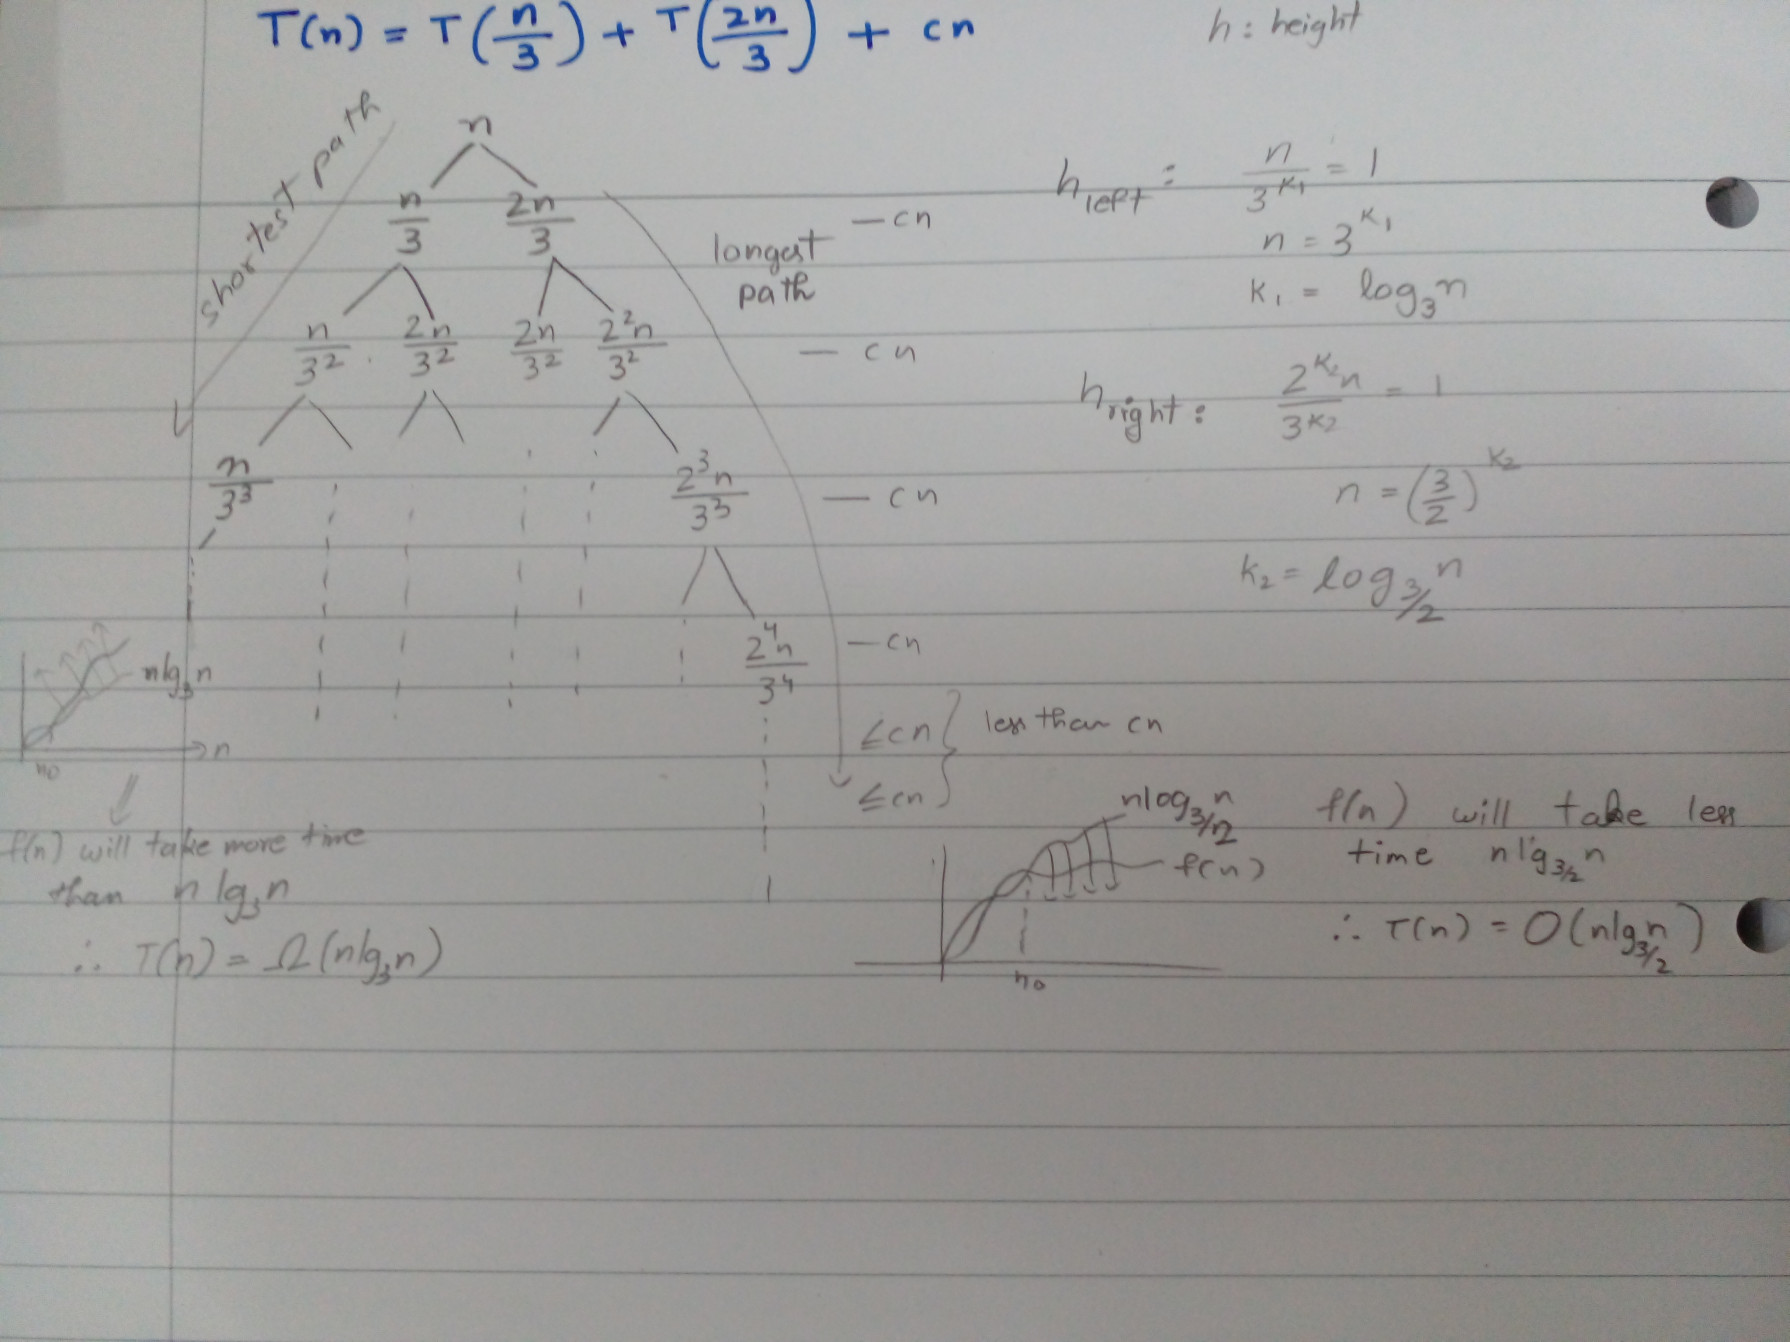 T(n) = T(n/3) + T(2n/3) + cn
h : height
shortest path
n
n/3 2n/3 — cn
longest path
n/3² 2n/3² 2n/3² 2²n/3² — cn
n/3³ 2³n/3³ — cn
2⁴n/3⁴ — cn
≤cn } less than cn
≤cn
h left : n/3^k₁ = 1
n = 3^k₁
k₁ = log₃n
h right : 2^k₂n/3^k₂ = 1
n = (3/2)^k₂
k₂ = log_3/2 n
nlg₃n
n
n₀
f(n) will take more time
than n lg₃n
∴ T(n) = Ω(nlg₃n)
nlog_3/2 n
f(n)
n₀
f(n) will take less
time nlg_3/2 n
∴ T(n) = O(nlg_3/2 n)